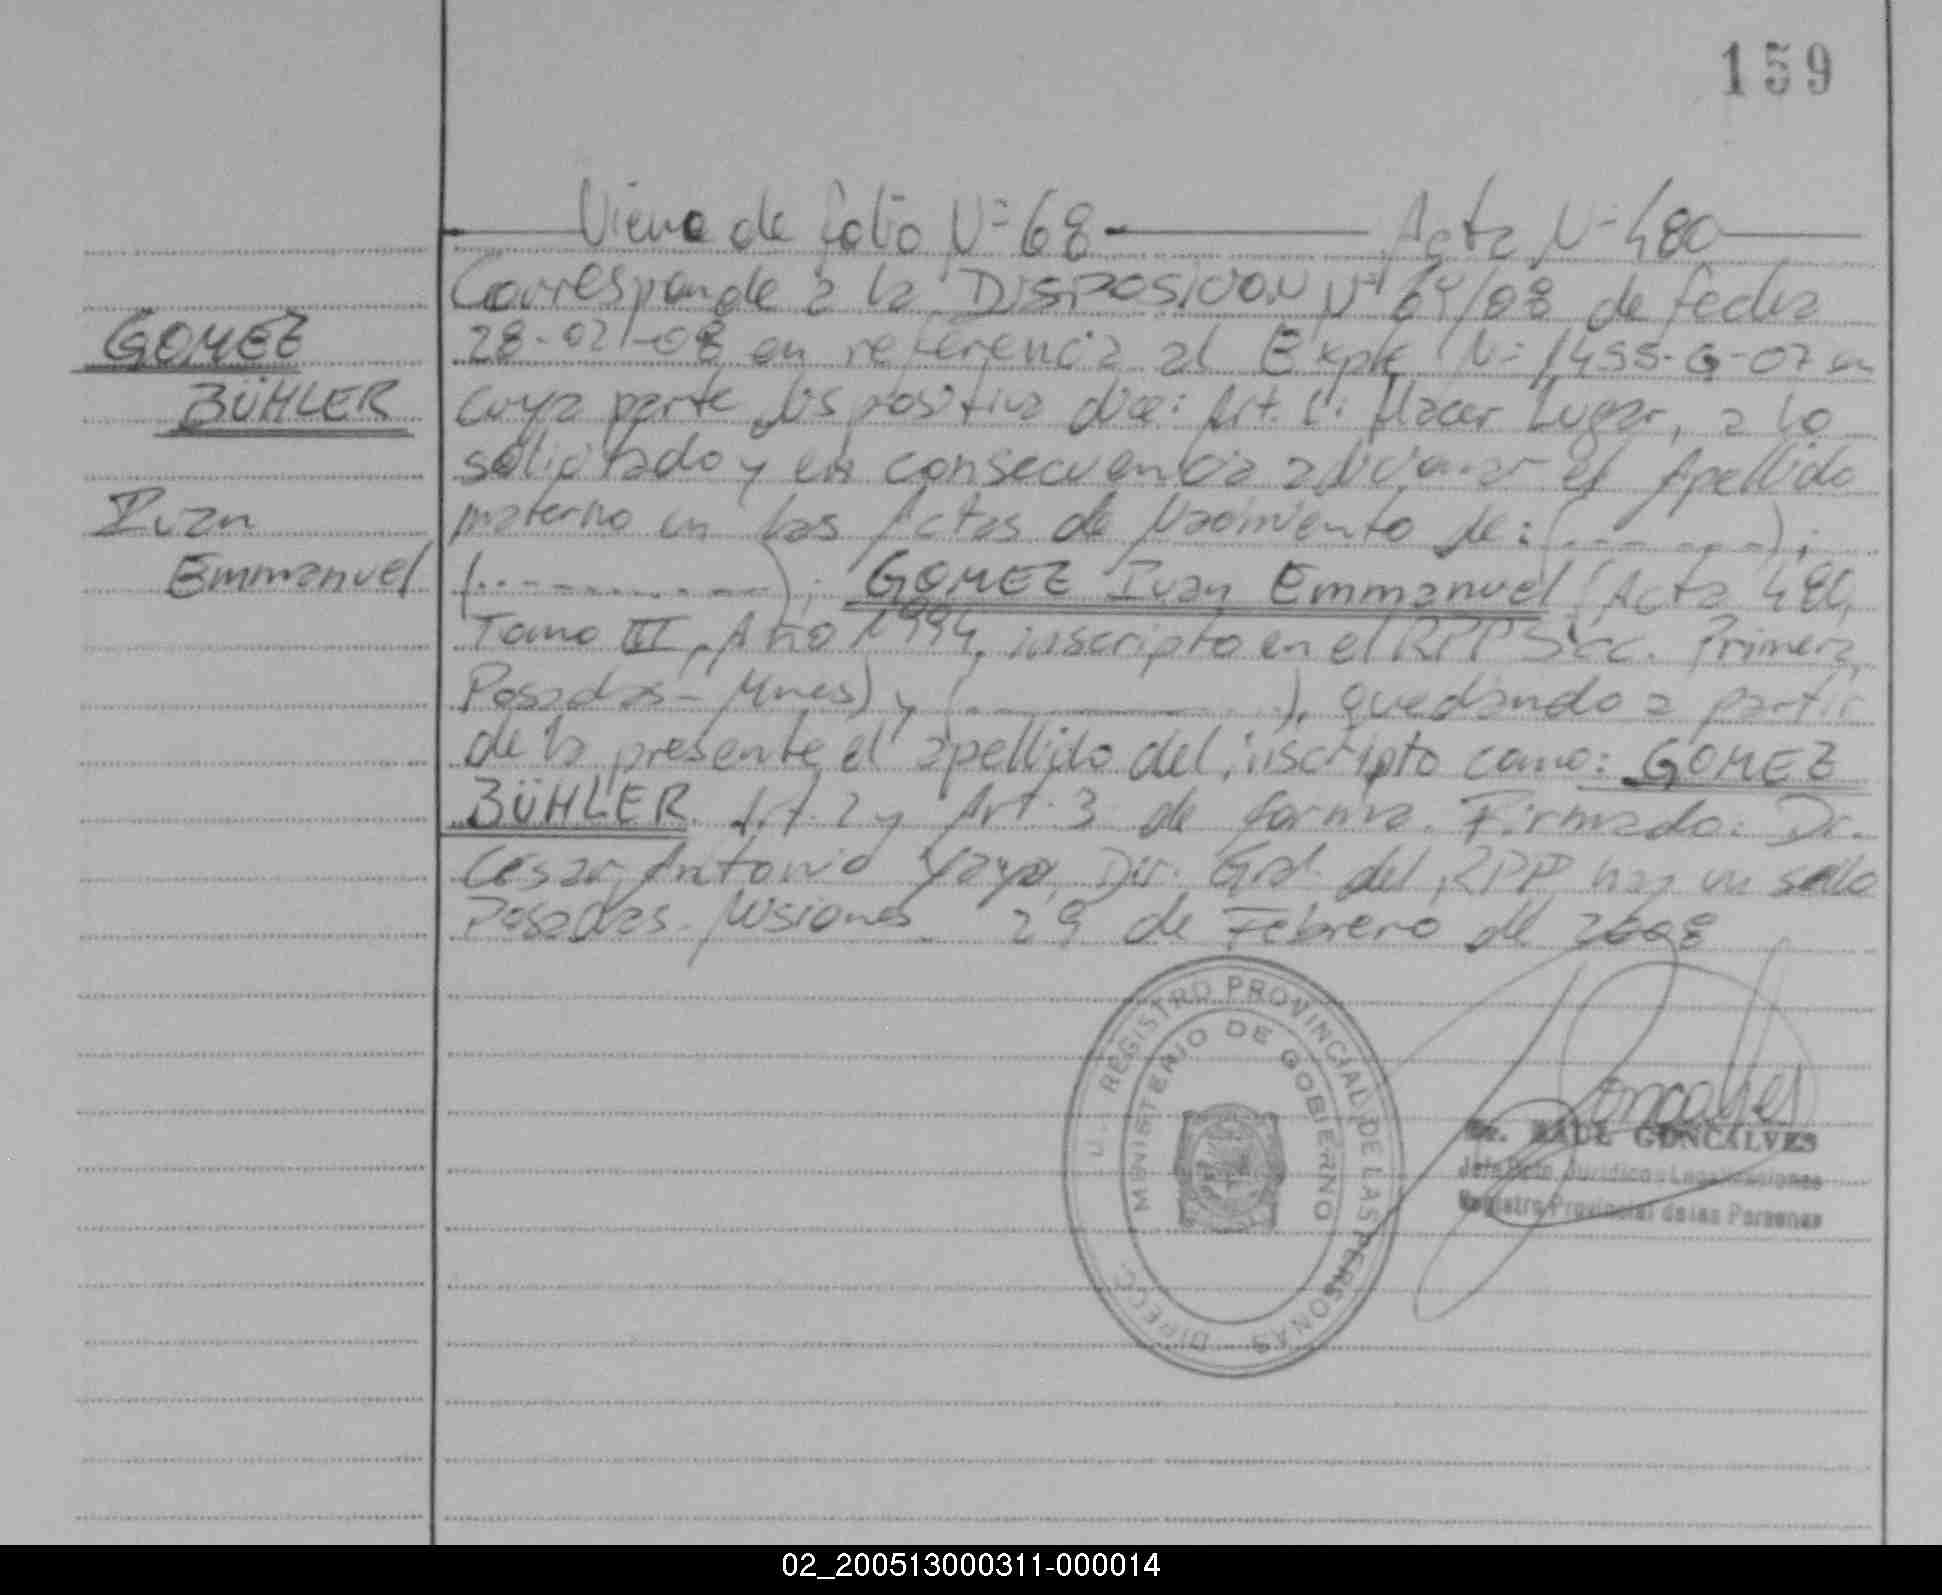 159
Viene de folio Nº 68 Acta Nº 480
Corresponde a la DISPOSICION Nº 64/08 de fecha
GOMEZ
28-02-08 en referencia al Expte Nº 1455-G-07 en
BÜHLER
cuya parte dispositiva dice: Art. 1º: Hacer Lugar, a lo
solicitado y en consecuencia adicionar el Apellido
Ivan
materno en las Actas de Nacimiento de: (--------);
Emmanuel
(------------); GOMEZ Ivan Emmanuel (Acta 480,
Tomo III, Año 1994, inscripto en el RPP Secc. Primera,
Posadas - Mnes) y (------------), quedando a partir
de la presente el apellido del inscripto como: GOMEZ
BÜHLER. Art. 2 y Art. 3 de forma. Firmado: Dr.
Cesar Antonio Yaya, Dir. Gral. del RPP hay un sello
Posadas. Misiones 29 de Febrero de 2008
REGISTRO PROVINCIAL DE LAS PERSONAS - DIRECC.
MINISTERIO DE GOBIERNO
Goncalves
Dr. RAUL GONCALVES
Jefe Dpto. Jurídico - Legalizaciones
Registro Provincial de las Personas
02_200513000311-000014